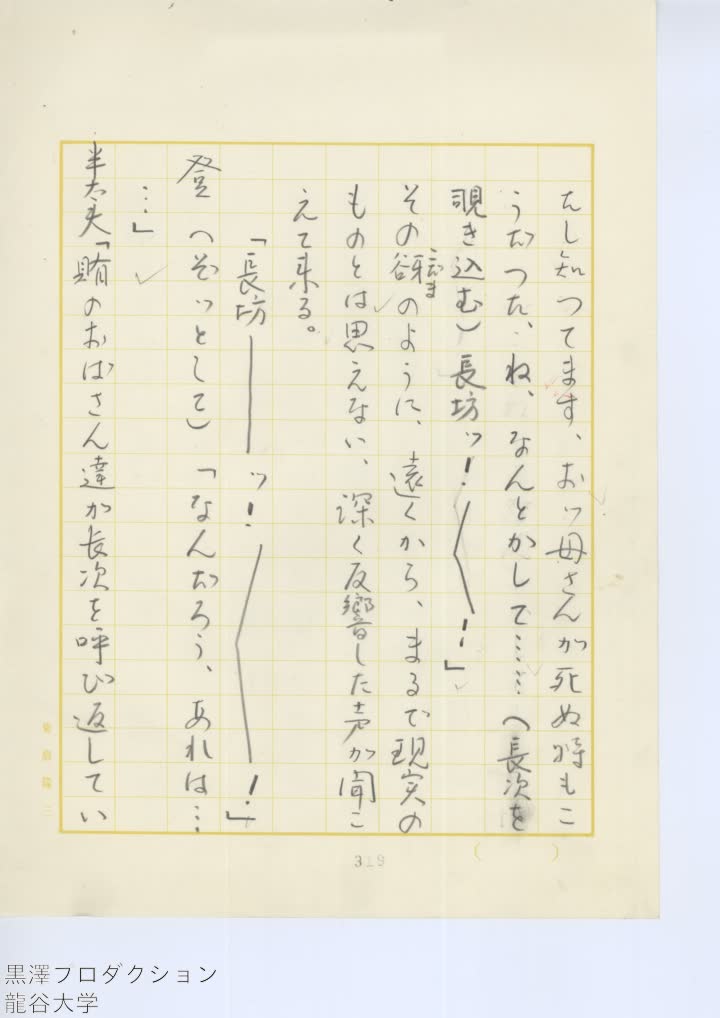 たし知つてます、おッ母さんが死ぬ時もこ
うだつた、ね、なんとかして……(長次を
覗き込む)長坊ッ！〱！」
その谺のように、遠くから、まるで現実の
こだま
ものとは思えない、深く反響した声が聞こ
えて来る。
「長坊――ッ！〱！」
登(ぞッとして)「なんだろう、あれは…
…」
半太夫「賄のおばさん達が長次を呼び返してい
319
黒澤プロダクション
龍谷大学